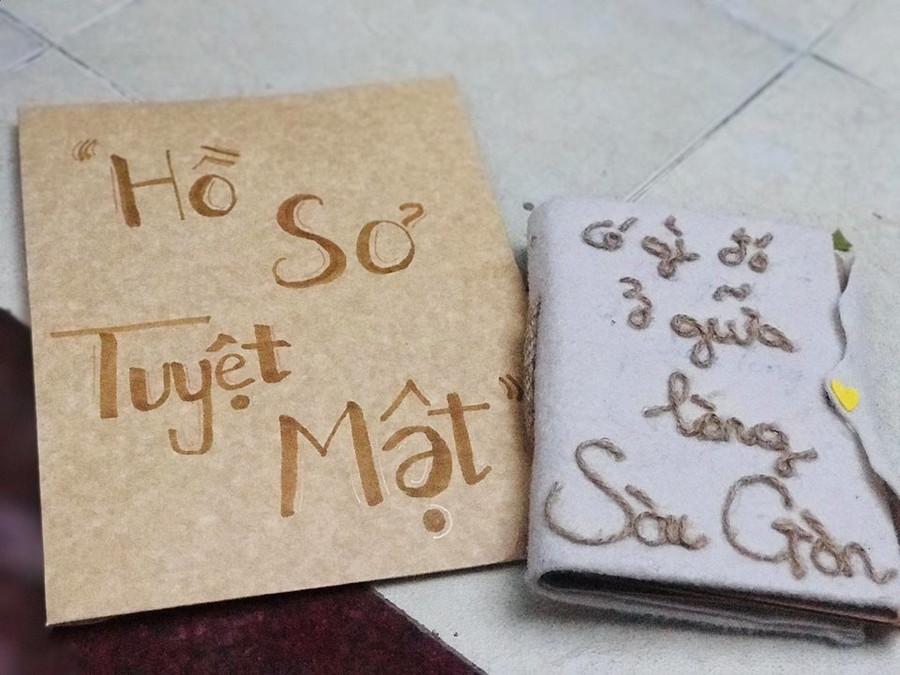 "Hồ
Sơ
Tuyệt
Mật"
Có gì đó
ở giữa
lòng
Sài Gòn